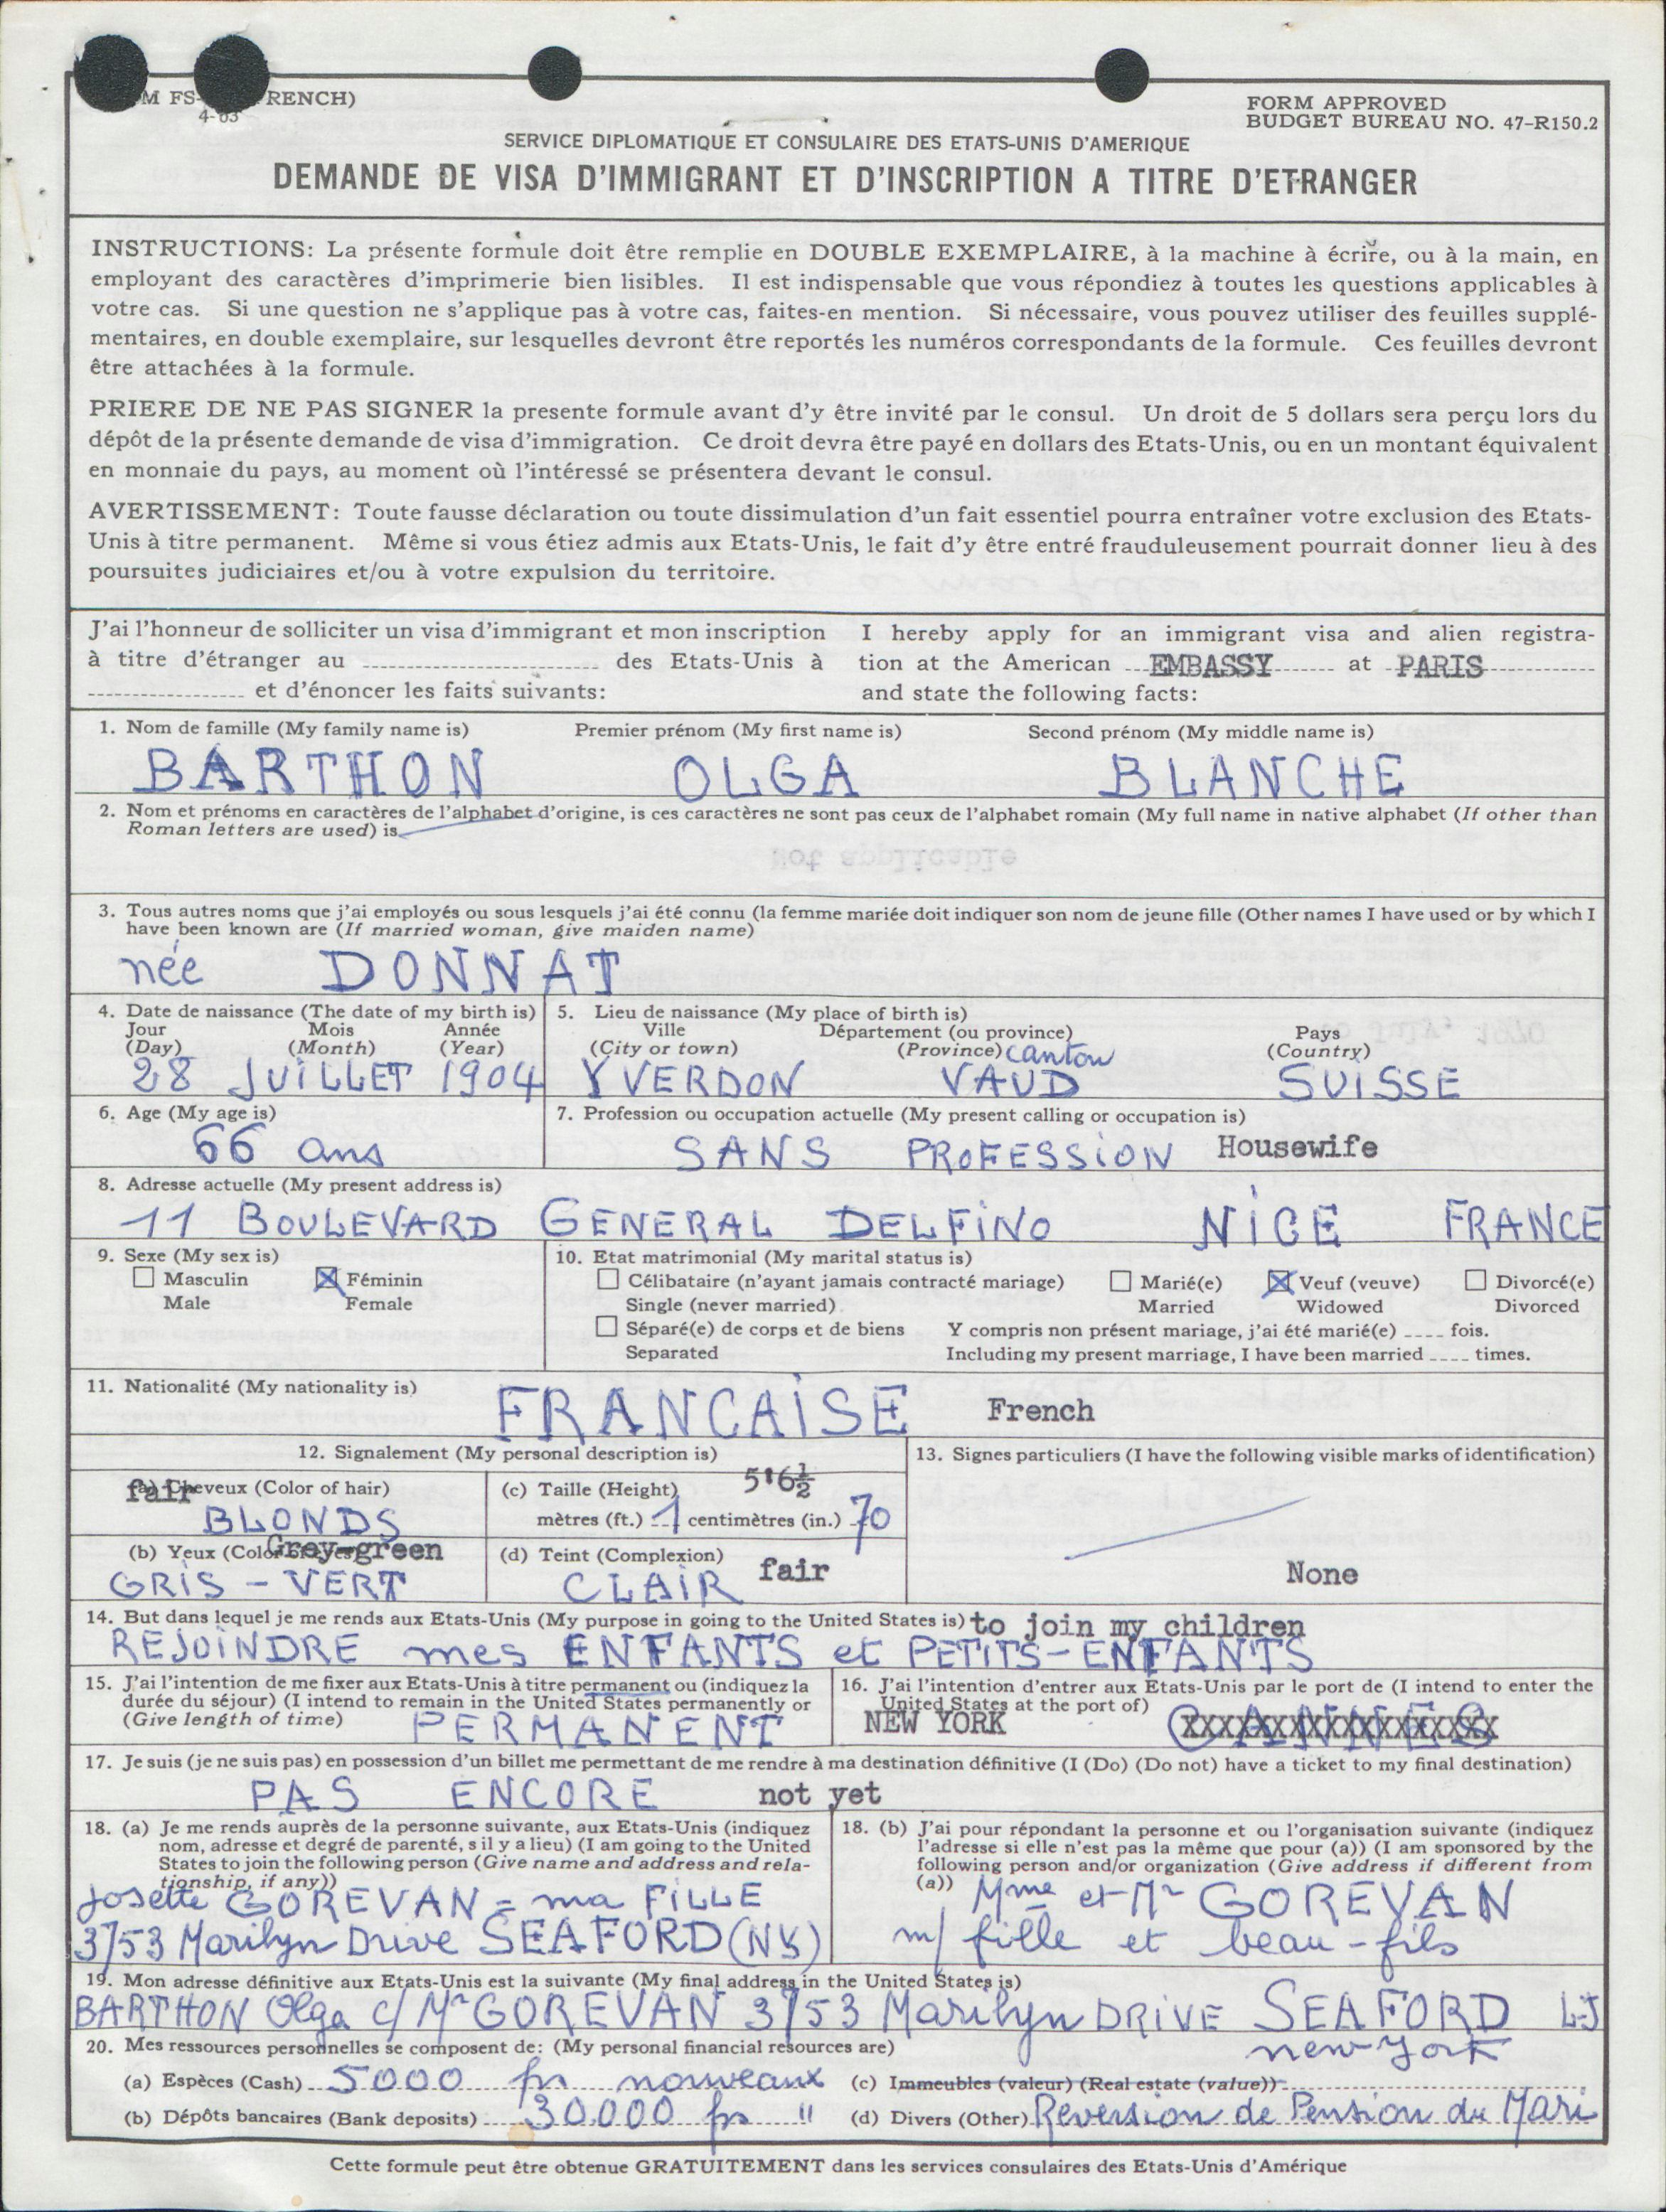 M FS- RENCH)
4-63
FORM APPROVED
BUDGET BUREAU NO. 47-R150.2
SERVICE DIPLOMATIQUE ET CONSULAIRE DES ETATS-UNIS D'AMERIQUE
DEMANDE DE VISA D'IMMIGRANT ET D'INSCRIPTION A TITRE D'ETRANGER
INSTRUCTIONS: La présente formule doit être remplie en DOUBLE EXEMPLAIRE, à la machine à écrire, ou à la main, en
employant des caractères d'imprimerie bien lisibles. Il est indispensable que vous répondiez à toutes les questions applicables à
votre cas. Si une question ne s'applique pas à votre cas, faites-en mention. Si nécessaire, vous pouvez utiliser des feuilles supplé-
mentaires, en double exemplaire, sur lesquelles devront être reportés les numéros correspondants de la formule. Ces feuilles devront
être attachées à la formule.
PRIERE DE NE PAS SIGNER la presente formule avant d'y être invité par le consul. Un droit de 5 dollars sera perçu lors du
dépôt de la présente demande de visa d'immigration. Ce droit devra être payé en dollars des Etats-Unis, ou en un montant équivalent
en monnaie du pays, au moment où l'intéressé se présentera devant le consul.
AVERTISSEMENT: Toute fausse déclaration ou toute dissimulation d'un fait essentiel pourra entraîner votre exclusion des Etats-
Unis à titre permanent. Même si vous étiez admis aux Etats-Unis, le fait d'y être entré frauduleusement pourrait donner lieu à des
poursuites judiciaires et/ou à votre expulsion du territoire.
J'ai l'honneur de solliciter un visa d'immigrant et mon inscription
à titre d'étranger au des Etats-Unis à
et d'énoncer les faits suivants:
I hereby apply for an immigrant visa and alien registra-
tion at the American EMBASSY at PARIS
and state the following facts:
1. Nom de famille (My family name is) Premier prénom (My first name is) Second prénom (My middle name is)
BARTHON OLGA BLANCHE
2. Nom et prénoms en caractères de l'alphabet d'origine, is ces caractères ne sont pas ceux de l'alphabet romain (My full name in native alphabet (If other than
Roman letters are used) is
3. Tous autres noms que j'ai employés ou sous lesquels j'ai été connu (la femme mariée doit indiquer son nom de jeune fille (Other names I have used or by which I
have been known are (If married woman, give maiden name)
née DONNAT
4. Date de naissance (The date of my birth is)
Jour Mois Année
(Day) (Month) (Year)
28 JUILLET 1904
5. Lieu de naissance (My place of birth is)
Ville Département (ou province) Pays
(City or town) (Province) canton (Country)
YVERDON VAUD SUISSE
6. Age (My age is)
66 ans
7. Profession ou occupation actuelle (My present calling or occupation is)
SANS PROFESSION Housewife
8. Adresse actuelle (My present address is)
11 BOULEVARD GENERAL DELFINO NICE FRANCE
9. Sexe (My sex is)
Masculin Féminin
Male Female
10. Etat matrimonial (My marital status is)
Célibataire (n'ayant jamais contracté mariage) Marié(e) Veuf (veuve) Divorcé(e)
Single (never married) Married Widowed Divorced
Séparé(e) de corps et de biens Y compris non présent mariage, j'ai été marié(e) ---- fois.
Separated Including my present marriage, I have been married ---- times.
11. Nationalité (My nationality is)
FRANCAISE French
12. Signalement (My personal description is)
(a) Cheveux (Color of hair)
fair
BLONDS
(c) Taille (Height) 5'6½
mètres (ft.) 1 centimètres (in.) 70
(b) Yeux (Color of eyes) Grey-green
GRIS - VERT
(d) Teint (Complexion) fair
CLAIR
13. Signes particuliers (I have the following visible marks of identification)
None
14. But dans lequel je me rends aux Etats-Unis (My purpose in going to the United States is) to join my children
REJOINDRE mes ENFANTS et PETITS-ENFANTS
15. J'ai l'intention de me fixer aux Etats-Unis à titre permanent ou (indiquez la
durée du séjour) (I intend to remain in the United States permanently or
(Give length of time) PERMANENT
16. J'ai l'intention d'entrer aux Etats-Unis par le port de (I intend to enter the
United States at the port of)
NEW YORK CANNES
17. Je suis (je ne suis pas) en possession d'un billet me permettant de me rendre à ma destination définitive (I (Do) (Do not) have a ticket to my final destination)
PAS ENCORE not yet
18. (a) Je me rends auprès de la personne suivante, aux Etats-Unis (indiquez
nom, adresse et degré de parenté, s il y a lieu) (I am going to the United
States to join the following person (Give name and address and rela-
tionship, if any))
Josette GOREVAN = ma FILLE
3753 Marilyn Drive SEAFORD (NY)
18. (b) J'ai pour répondant la personne et ou l'organisation suivante (indiquez
l'adresse si elle n'est pas la même que pour (a)) (I am sponsored by the
following person and/or organization (Give address if different from
(a)) Mme et Mr GOREVAN
m/ fille et beau-fils
19. Mon adresse définitive aux Etats-Unis est la suivante (My final address in the United States is)
BARTHON Olga c/ Mr GOREVAN 3753 Marilyn DRIVE SEAFORD L-I
new York
20. Mes ressources personnelles se composent de: (My personal financial resources are)
(a) Espèces (Cash) 5000 frs nouveaux
(b) Dépôts bancaires (Bank deposits) 30000 frs "
(c) Immeubles (valeur) (Real estate (value))
(d) Divers (Other) Reversion de Pension du Mari
Cette formule peut être obtenue GRATUITEMENT dans les services consulaires des Etats-Unis d'Amérique